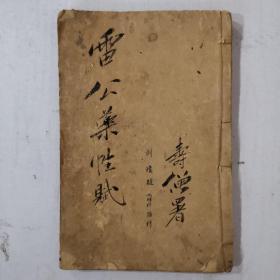 雷公藥性賦
壽僧署